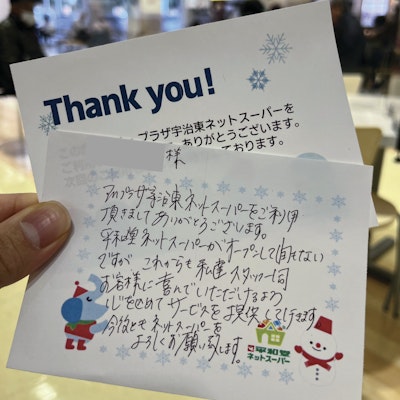 Thank you!
プラザ宇治東ネットスーパーを
ありがとうございます。
ております。
この
ご利
次回
様
アルプラザ宇治東ネットスーパーをご利用
頂きましてありがとうございます。
平和堂ネットスーパーがオープンして間もない
ですが これからも私達スタッフ一同
お客様に喜んでいただけるよう
心を込めてサービスを提供して行きます
今後ともネットスーパーを
よろしくお願い致します。
平和堂
ネットスーパー